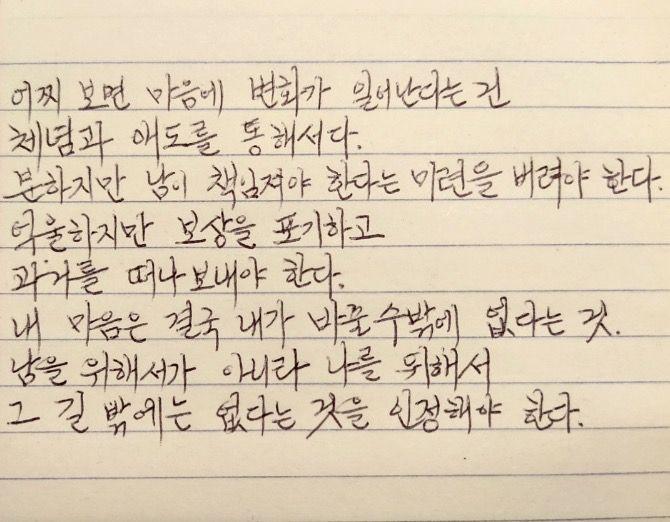 어찌 보면 마음에 변화가 일어난다는 건
체념과 애도를 통해서다.
분하지만 남이 책임져야 한다는 미련을 버려야 한다.
억울하지만 보상을 포기하고
과거를 떠나보내야 한다.
내 마음은 결국 내가 바꿀 수밖에 없다는 것.
남을 위해서가 아니라 나를 위해서
그 길 밖에는 없다는 것을 인정해야 한다.